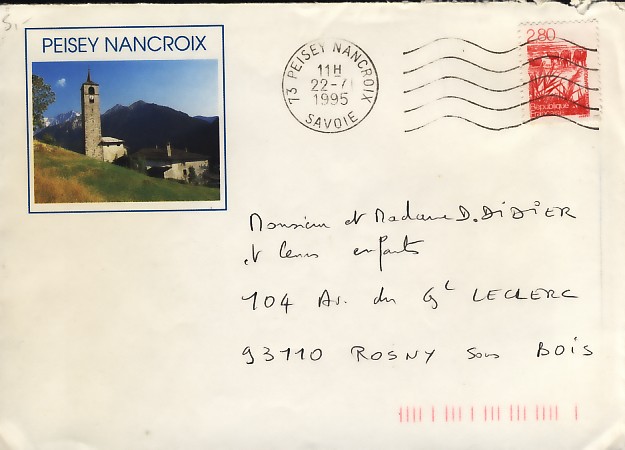 5,-
PEISEY NANCROIX
73 PEISEY NANCROIX
11H
22-7
1995
SAVOIE
2,80
République
Française
Monsieur et Madame D. DIDIER
et leurs enfants
104 Av. du GL LECLERC
93110 ROSNY sous BOIS